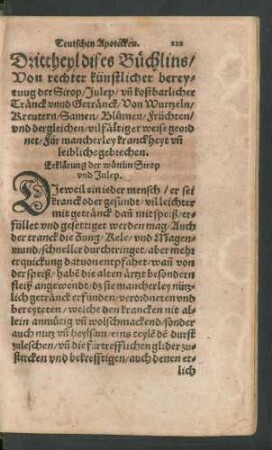 Teutschen Apotecken.
Drittheyl dises Büchlins/
Von rechter künstlicher berey-
tung der Sirop/ Julep/ vñ kostbarlicher
Tränck vnnd Getränck/ Von Wurtzeln/
Kreutern/ Samen/ Blümen/ Früchten/
vnd dergleichen/ vilfältiger weise geord
net/ Für mancherley kranckheyt vñ
leibliche gebrechen.
Erklärung der wörtlin Sirop
vnd Julep.
DJeweil ein ieder mensch/ er sei
kranck oder gesundt/ vil leichter
mit getränck dañ mit speiß/ er-
füllet vnd gesettiget werden mag/ Auch
der tranck die Zung/ Kele/ vnd Magen-
mund/ schneller durchtringet/ aber meht
erquickung daruon entpfahet/ wañ von
der speiß/ habē die alten ärtzt besondern
fleiß angewendt/ dz sie mancherley nütz-
lich getränck erfunden/ verordneten vnd
bereyteten/ welche den krancken nit al-
lein anmütig vñ wolschmackend/ sonder
auch nutz vñ heylsam/ eins teyls dē durst
zuleschen/ vñ die fürtrefflichen glider zu-
stercken vnd bekrefftigen/ auch denen et-
lich